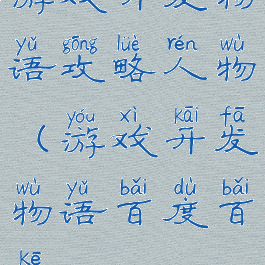 游戏开发物
yǔ gōng lüè rén wù
语攻略人物
yóu xì kāi fā
（游戏开发
wù yǔ bǎi dù bǎi
物语百度百
kē